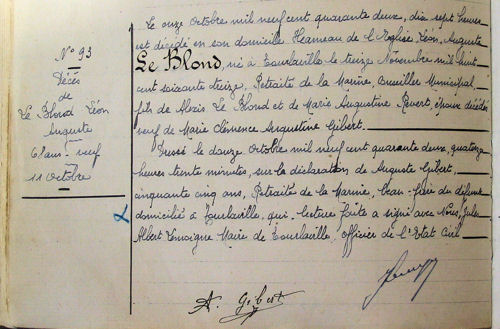 N° 93
Décès
de
Le Blond Léon
Auguste
69 ans - veuf
11 Octobre
Le onze Octobre mil neuf cent quarante deux, dix sept heures
est décédé en son domicile Hameau de l'Eglise Léon, Auguste
Le Blond, né à Tourlaville le treize Novembre mil huit
cent soixante treize, Retraité de la Marine, Conseiller Municipal,
fils de Alexis Le Blond et de Marie Augustine, époux décédés
veuf de Marie Clémence Augustine Gibert.
Dressé le douze Octobre mil neuf cent quarante deux, quatorze
heures trente minutes, sur la déclaration de Auguste Gibert,
cinquante cinq ans, Retraité de la Marine, beau-frère du défunt
domicilié à Tourlaville, qui, lecture faite a signé avec Nous, Jules
Albert Lemoigne Maire de Tourlaville, Officier de l'Etat Civil
A. Gibert